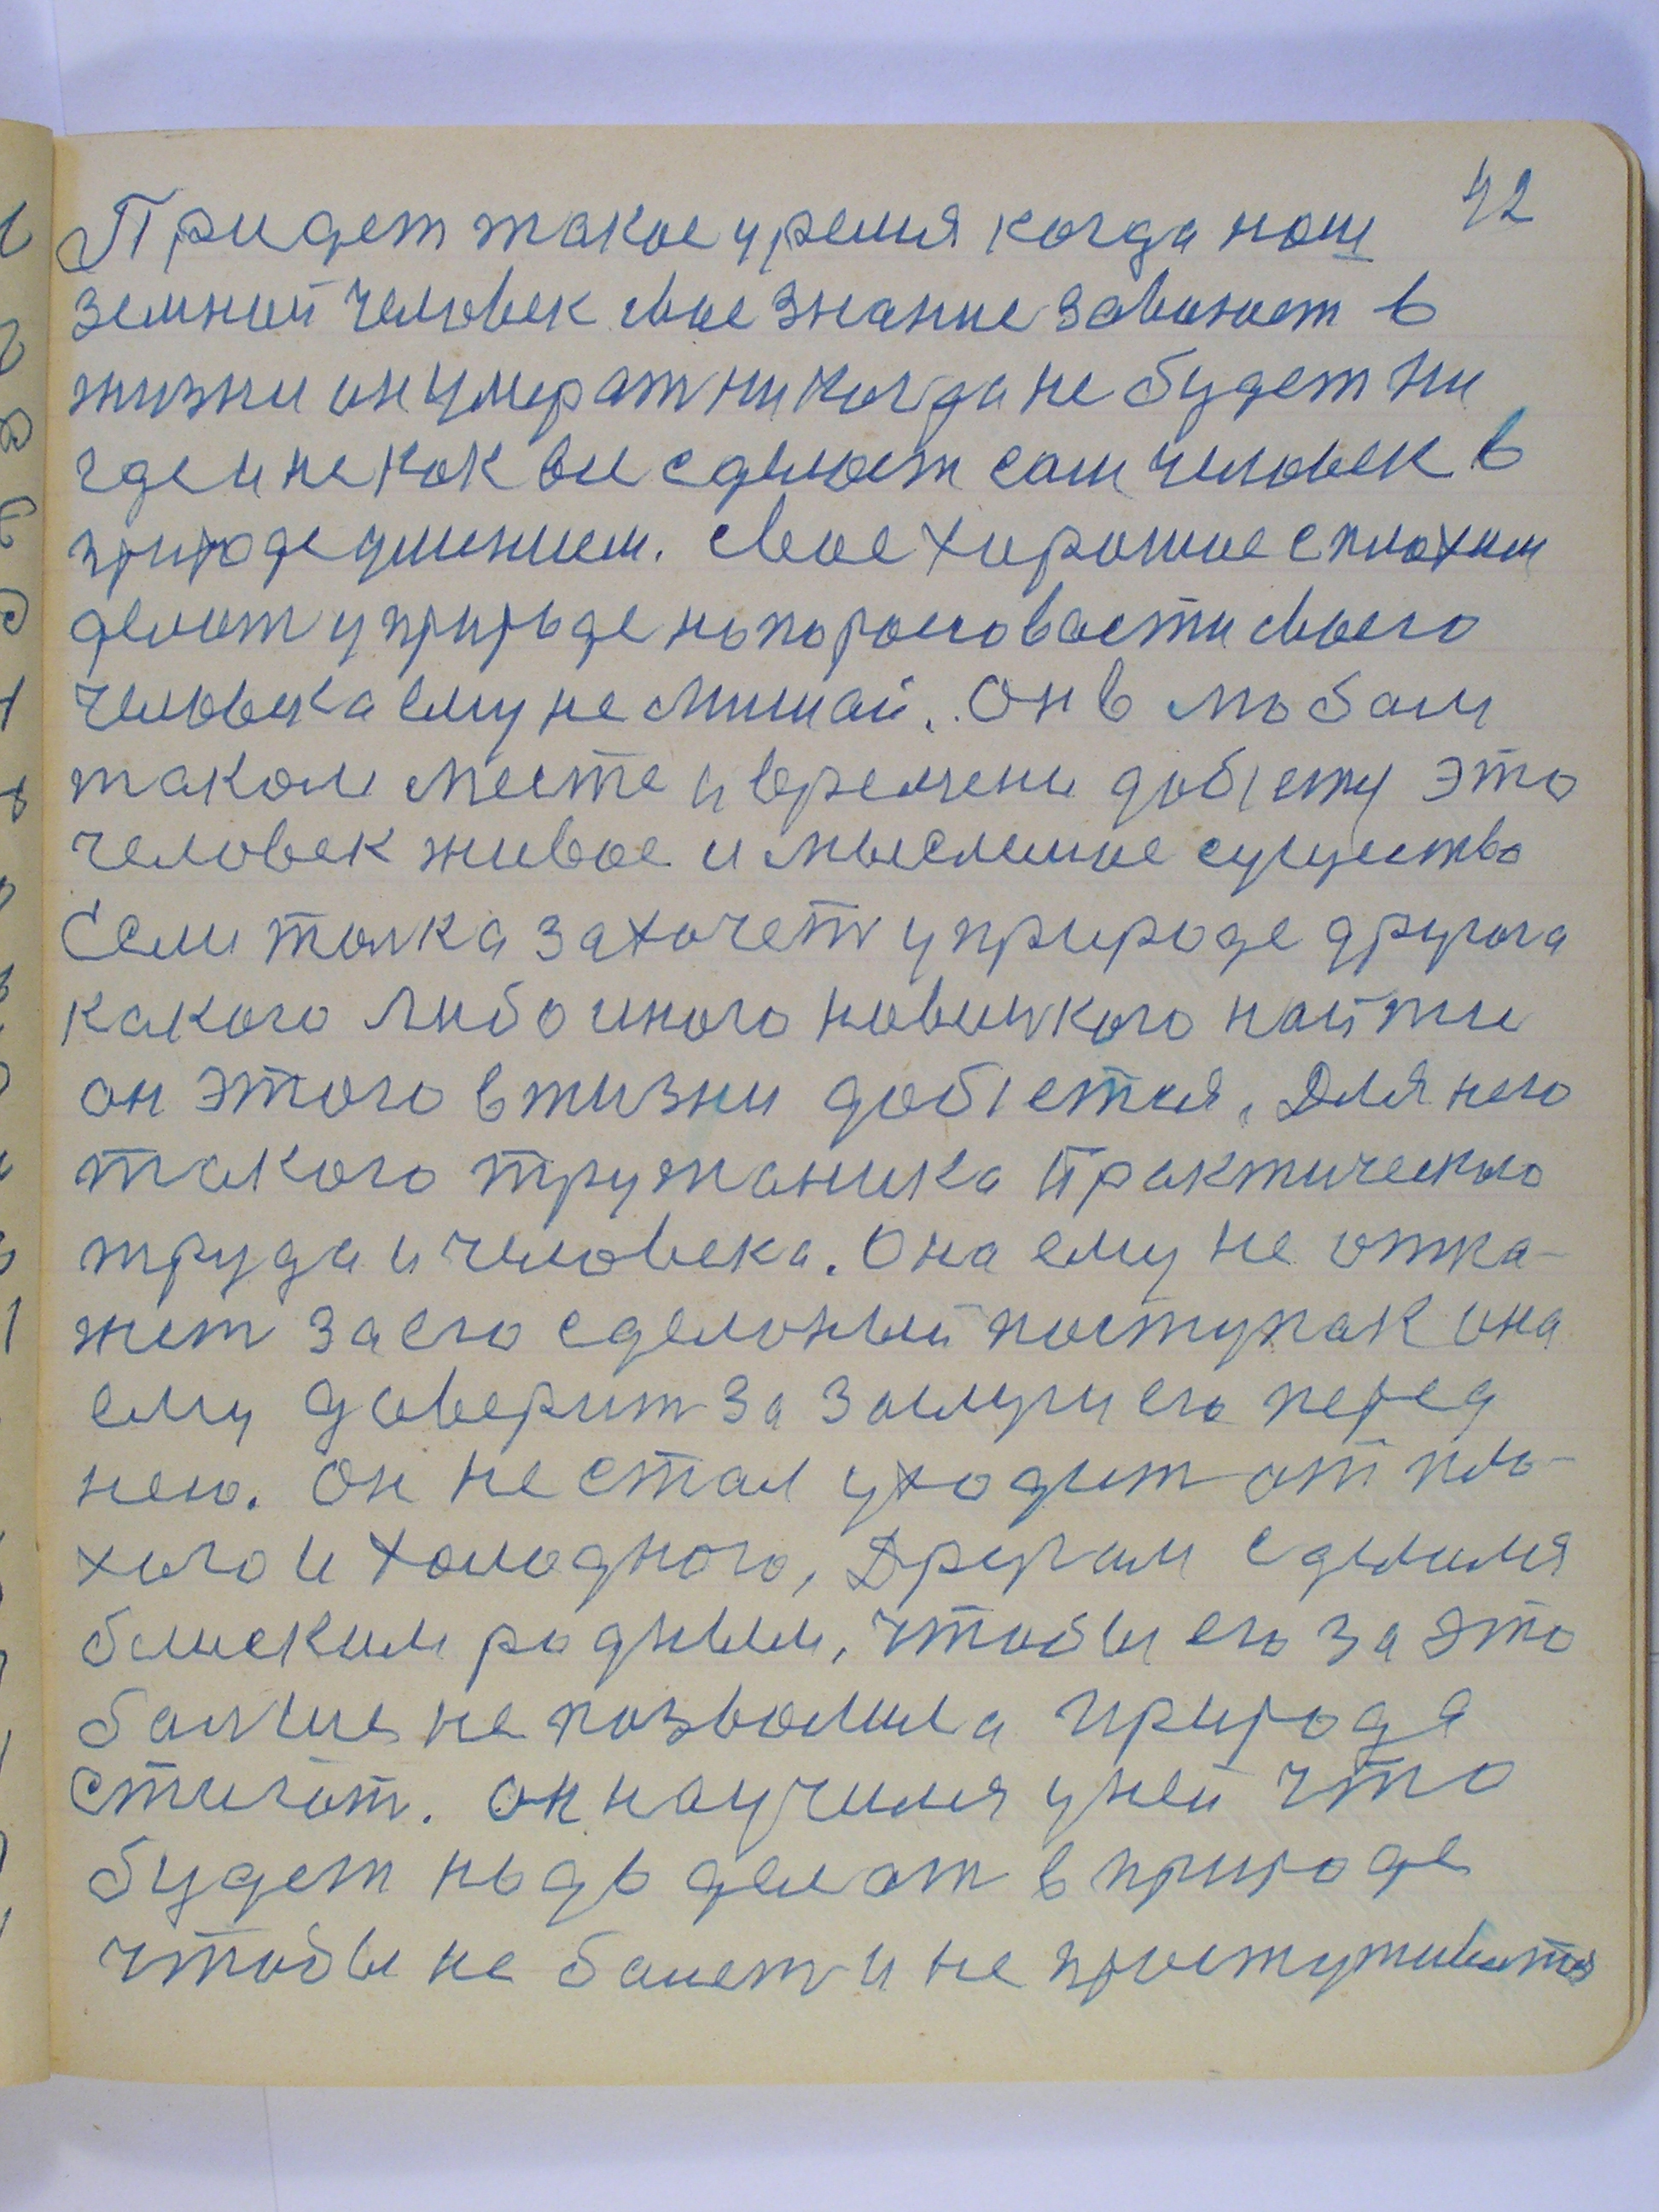 42
Придет такое уремя когда нош
земной человек свое знание завоюет в
жизни он умират никогда не будет ни
где и не как вие сделоет сам человек в
природе умением. свое хорошое с плохим
делит у природе
человека ему не мишай. Он в любом
таком месте и времени добъету это
человек живое и мыслемое существо
Если толка захочет у природе другога
какого либо иного новинкого найти
он этого в жизни добъется, Для него
такого тружаника практическаго
труда и человека. Она ему не отка-
жит за его сделоный поступак она
ему доверит за заслуги его перед
нею. Он не стал уходит от пло-
хого и холодного, Другом сделился
блиским родным, чтобы его за это
болше не позволила природа
стигат. он научился у ней что
будет надо делат в природе
чтобы не болет и не простуживатся